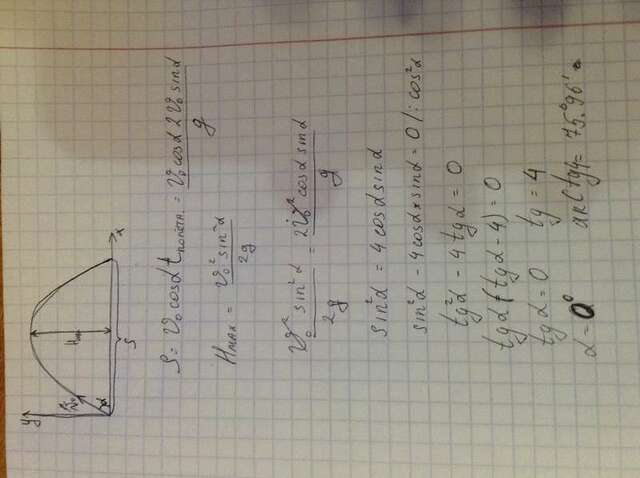 y
x
V₀
α
Hmax
S
S = V₀ cosα tполёта = V₀ cosα 2V₀ sinα / g
HMAX = V₀² sin²α / 2g
V₀² sin²α / 2g = 2V₀² cosα sinα / g
sin²α = 4 cosα sinα
sin²α - 4cosα × sinα = 0 /: cos²α
tg²α - 4 tgα = 0
tgα (tgα - 4) = 0
tgα = 0 tg = 4
α = 0° arctg4 = 75°96'